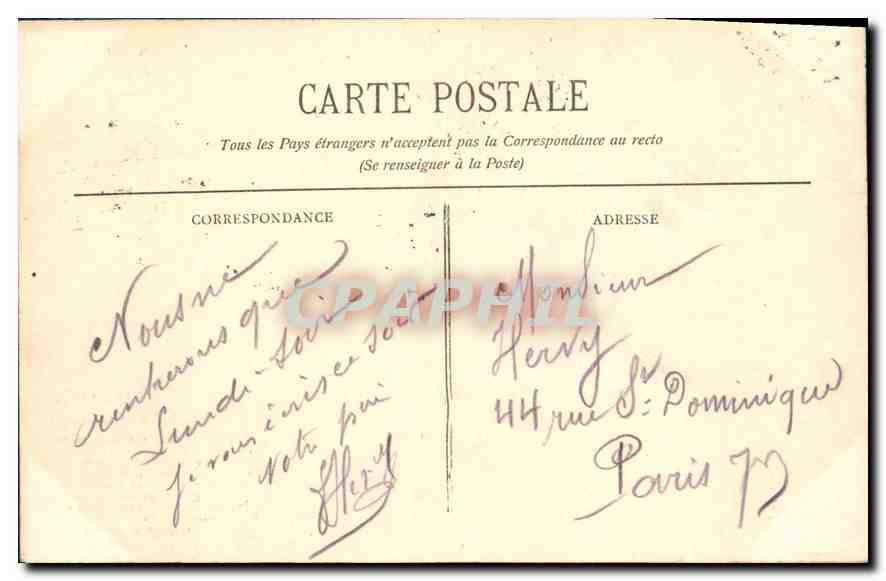 CARTE POSTALE
Tous les Pays étrangers n'acceptent pas la Correspondance au recto
(Se renseigner à la Poste)
CORRESPONDANCE
Nous ne
rentrerons que
Lundi-soir
je vous écris ce soir
Votre
Hervy
ADRESSE
Monsieur
Hervy
44 rue St. Dominique
Paris
CPAPHIL